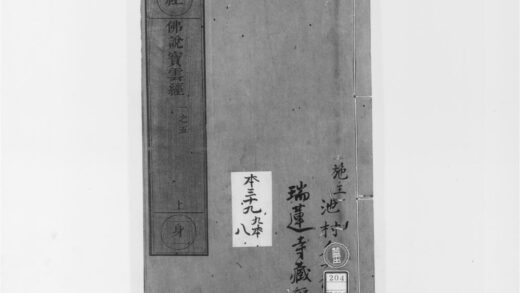 經
佛說寶雲經 一之五 上
身
本三十九 九本
八
施主 池村
瑞蓮寺藏
204